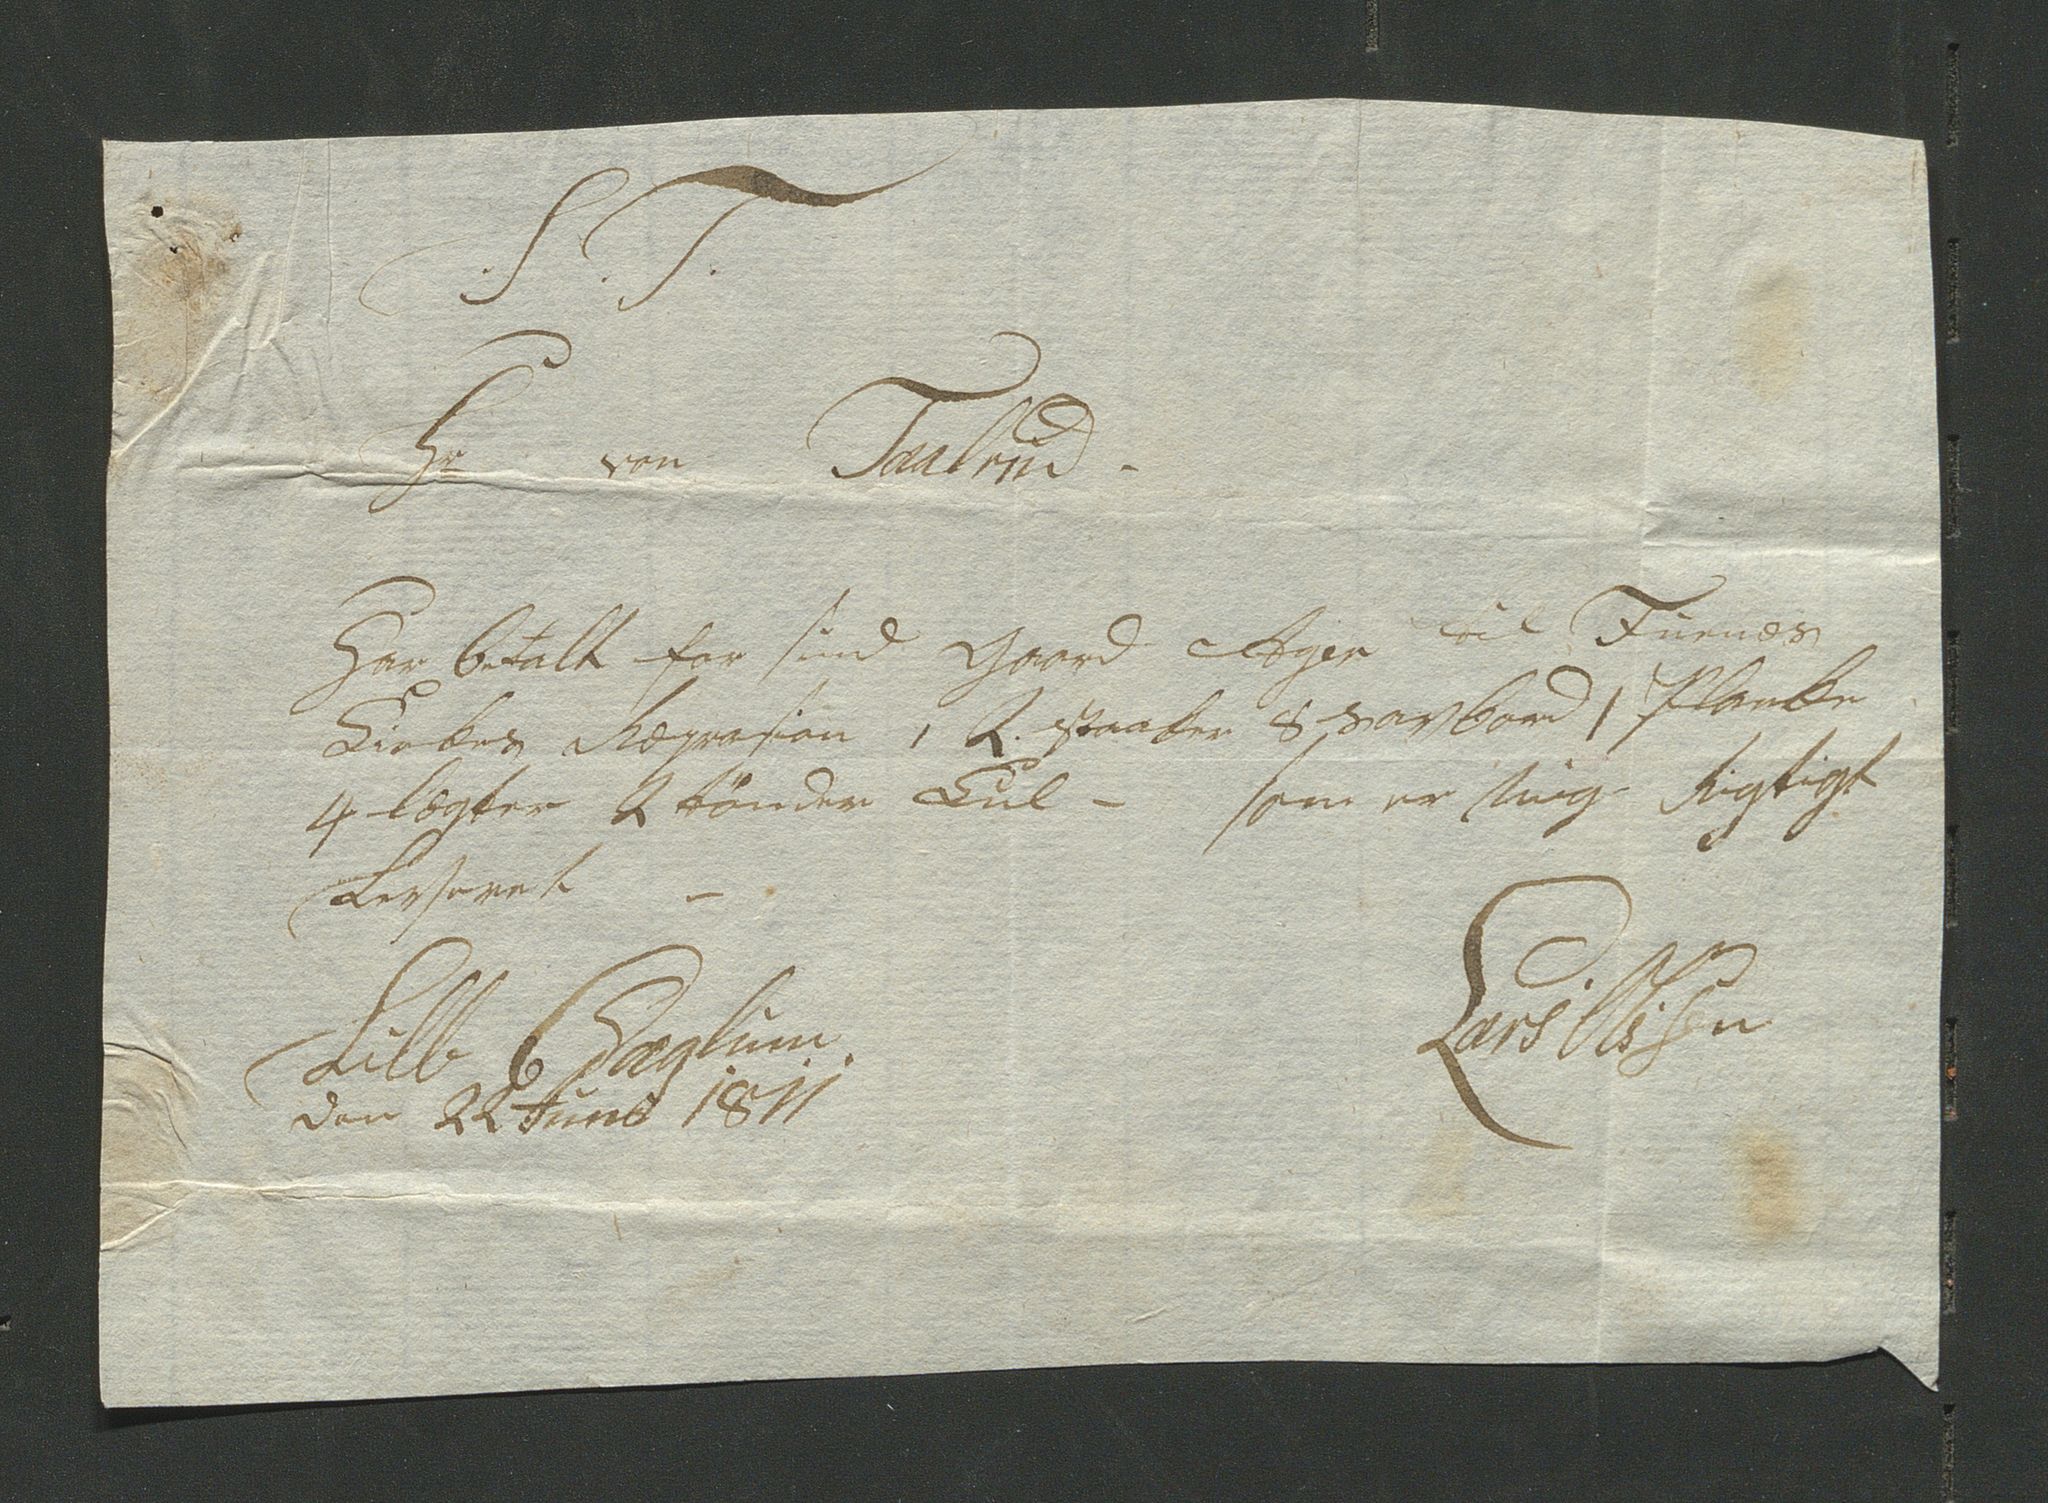 S. T.
Hr von Taalrud -
Har betalt for sind Gaard Ager til Furnæs
Kirkes Ræprasion, 2. staaker 8 savbord 1 Planke
4 lægter 2 tønder Kul - som er mig Rigtigt
Leveret -
Lille Hæglum.
den 22 Juni 1811
Lars Olsen